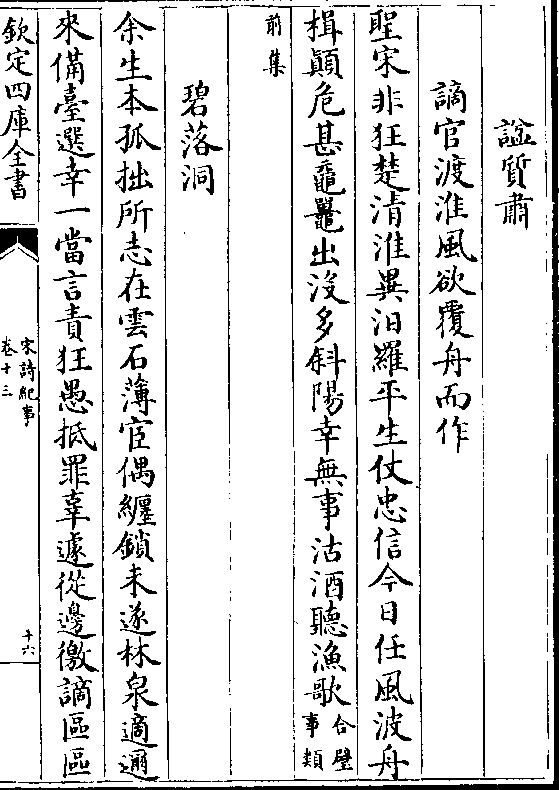 諡質肅
謫官渡淮風欲覆舟而作
聖宋非狂楚清淮異汨羅平生仗忠信今日任風波舟
楫顛危甚黿鼉出沒多斜陽幸無事沽酒聽漁歌合璧事類
前集
碧落洞
余生本孤拙所志在雲石薄宦偶纏鎖未遂林泉適邇
來備臺選幸一當言責狂愚抵罪辜遽從邊徼謫區區
欽定四庫全書
宋詩紀事
卷十三
十六